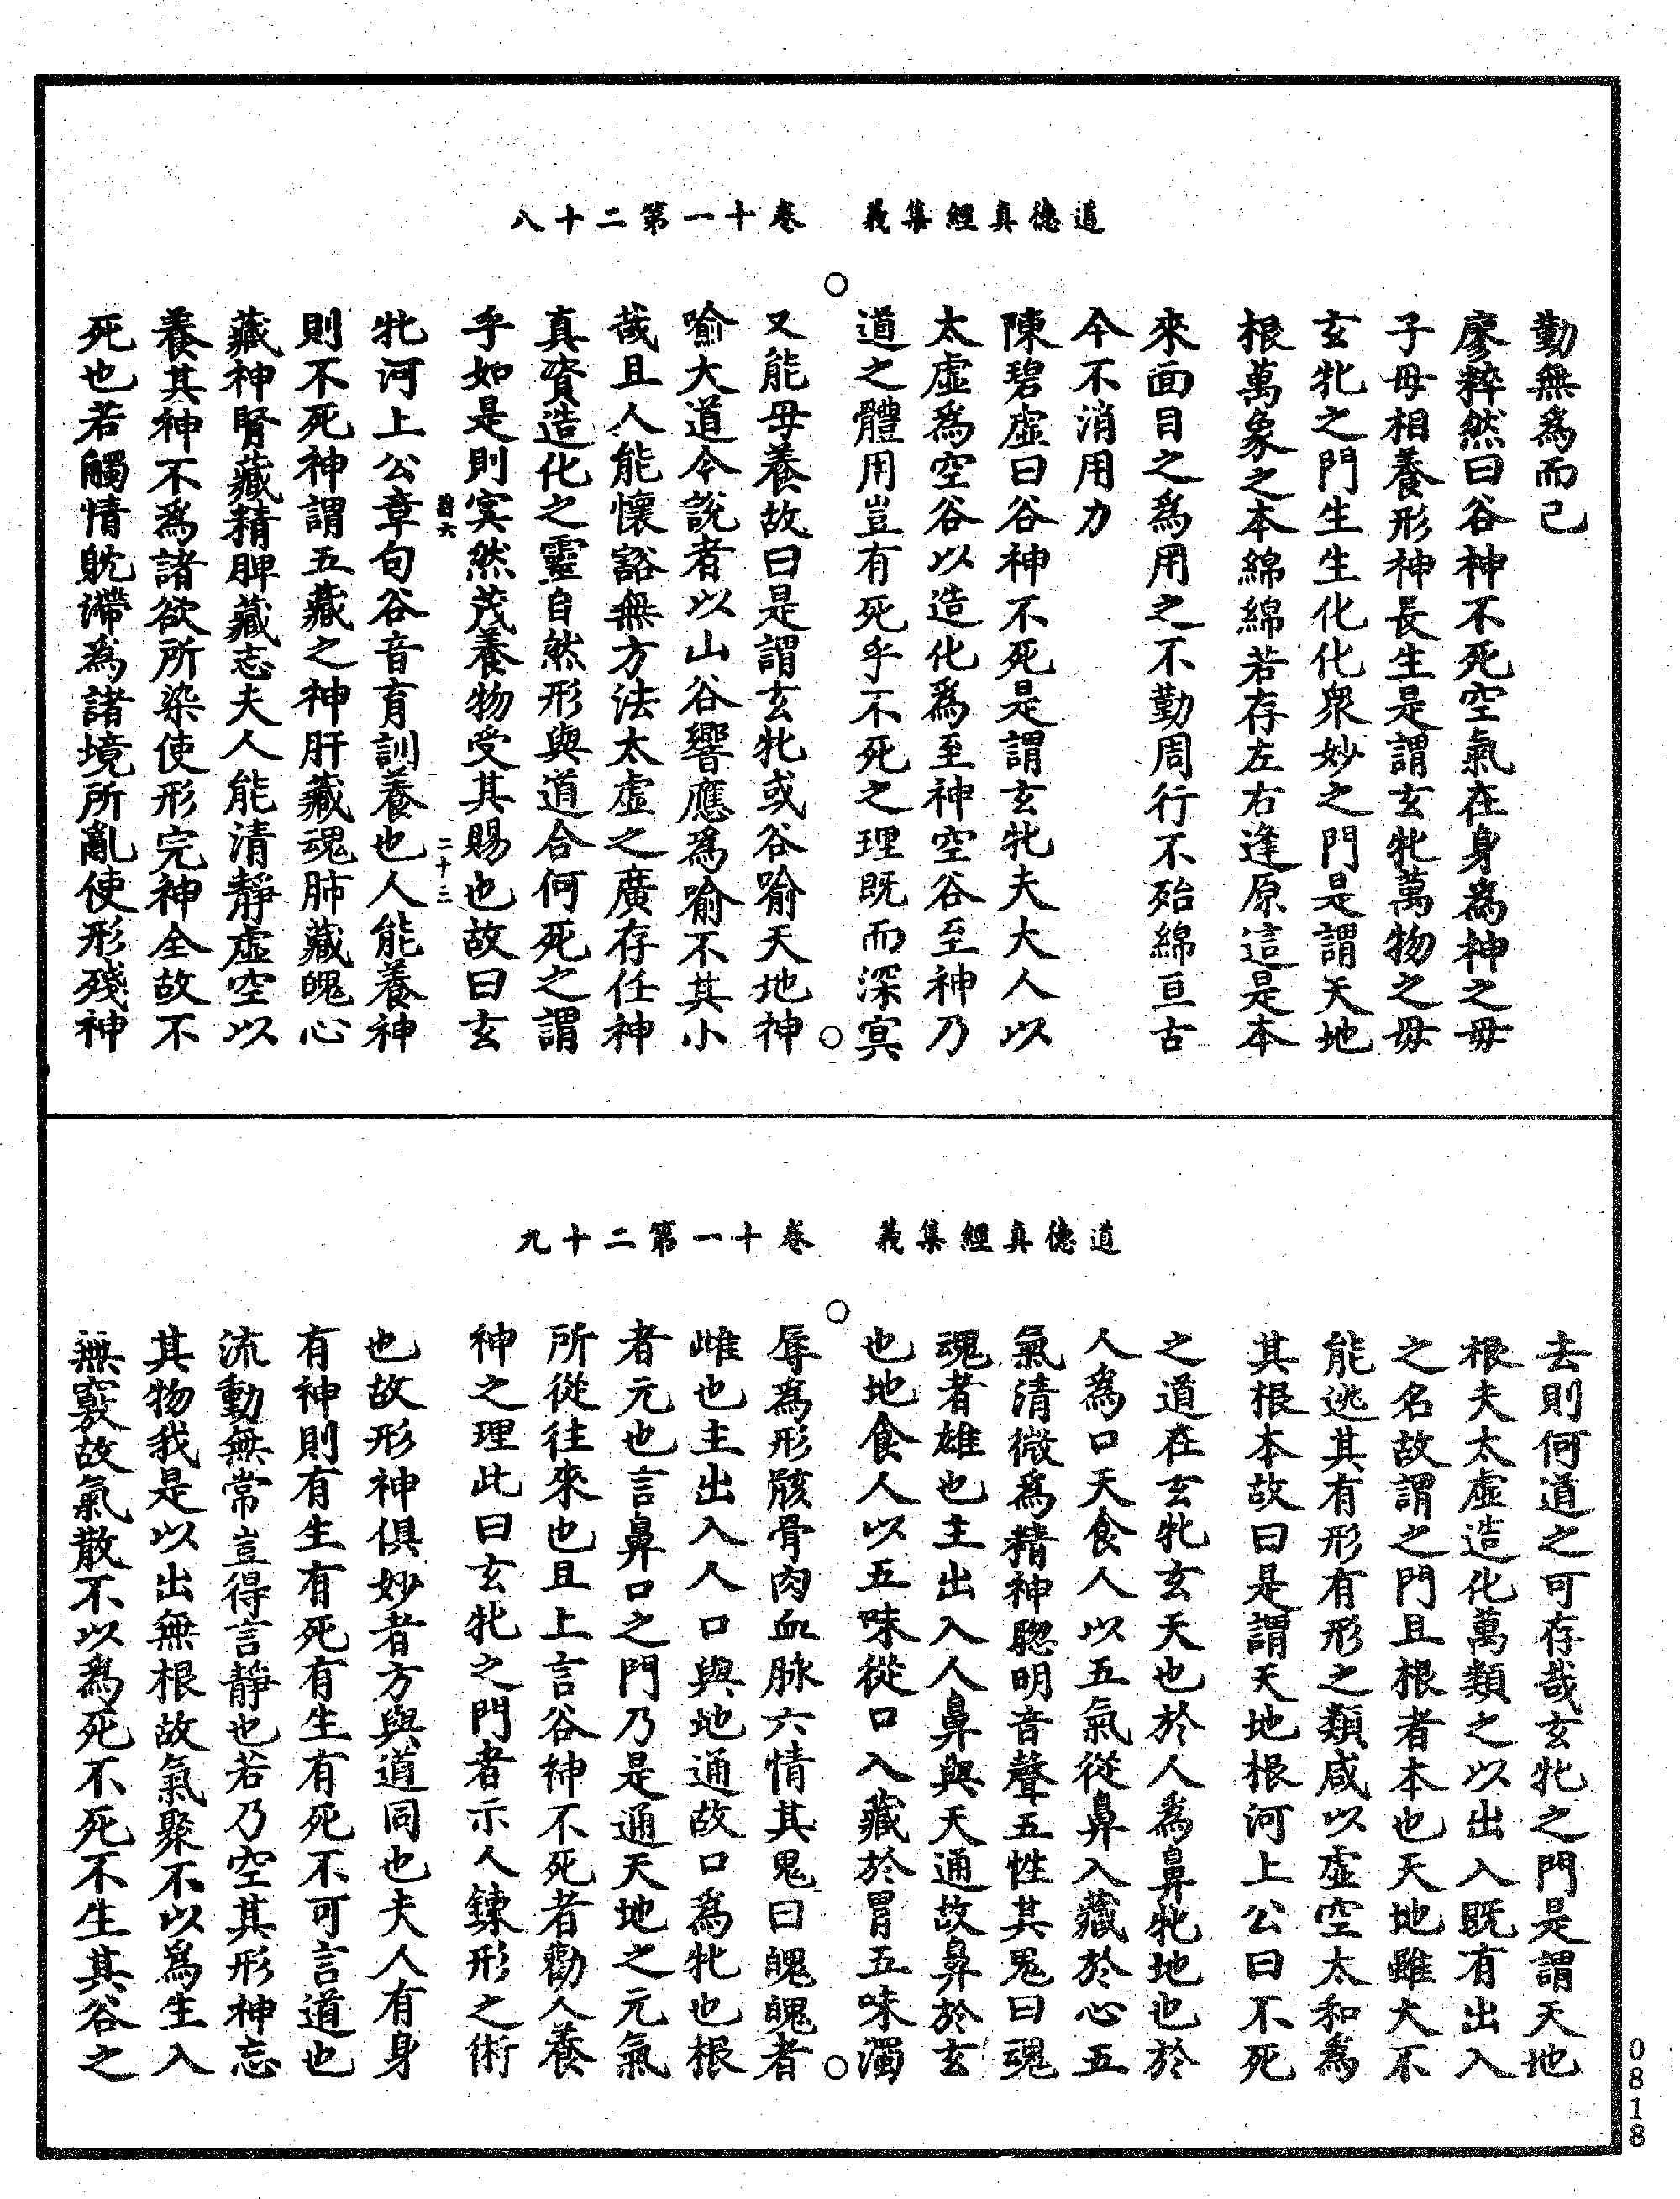 道德真經集義　卷十一第二十八
勤無為而已
廖粹然曰谷神不死空氣在身為神之母
子母相養形神長生是謂玄牝萬物之母
玄牝之門生生化化眾妙之門是謂天地
根萬象之本綿綿若存左右逢原這是本
來面目之為用之不勤周行不殆綿亘古
今不消用力
陳碧虛曰谷神不死是謂玄牝夫大人以
太虛為空谷以造化為至神空谷至神乃
道之體用豈有死乎不死之理既而深冥
又能母養故曰是謂玄牝或谷喻天地神
喻大道今說者以山谷響應為喻不其小
哉且人能懷豁無方法太虛之廣存任神
真資造化之靈自然形與道合何死之謂
乎如是則冥然茂養物受其賜也故曰玄
牝河上公章句谷音育訓養也人能養神
則不死神謂五藏之神肝藏魂肺藏魄心
藏神腎藏精脾藏志夫人能清靜虛空以
養其神不為諸欲所染使形完神全故不
死也若觸情躭滯為諸境所亂使形殘神
二十二
道德真經集義　卷十一第二十九
去則何道之可存哉玄牝之門是謂天地
根夫太虛造化萬類之以出入既有出入
之名故謂之門且根者本也天地雖大不
能逃其有形有形之類咸以虛空太和為
其根本故曰是謂天地根河上公曰不死
之道在玄牝玄天也於人為鼻牝地也於
人為口天食人以五氣從鼻入藏於心五
氣清微為精神聦明音聲五性其鬼曰魂
魂者雄也主出入人鼻與天通故鼻於玄
也地食人以五味從口入藏於胃五味濁
辱為形骸骨肉血脉六情其鬼曰魄魄者
雌也主出入人口與地通故口為牝也根
者元也言鼻口之門乃是通天地之元氣
所從往來也且上言谷神不死者勸人養
神之理此曰玄牝之門者示人鍊形之術
也故形神俱妙者方與道同也夫人有身
有神則有生有死有生有死不可言道也
流動無常豈得言靜也若乃空其形神忘
其物我是以出無根故氣聚不以為生入
無竅故氣散不以為死不死不生其谷之
0818